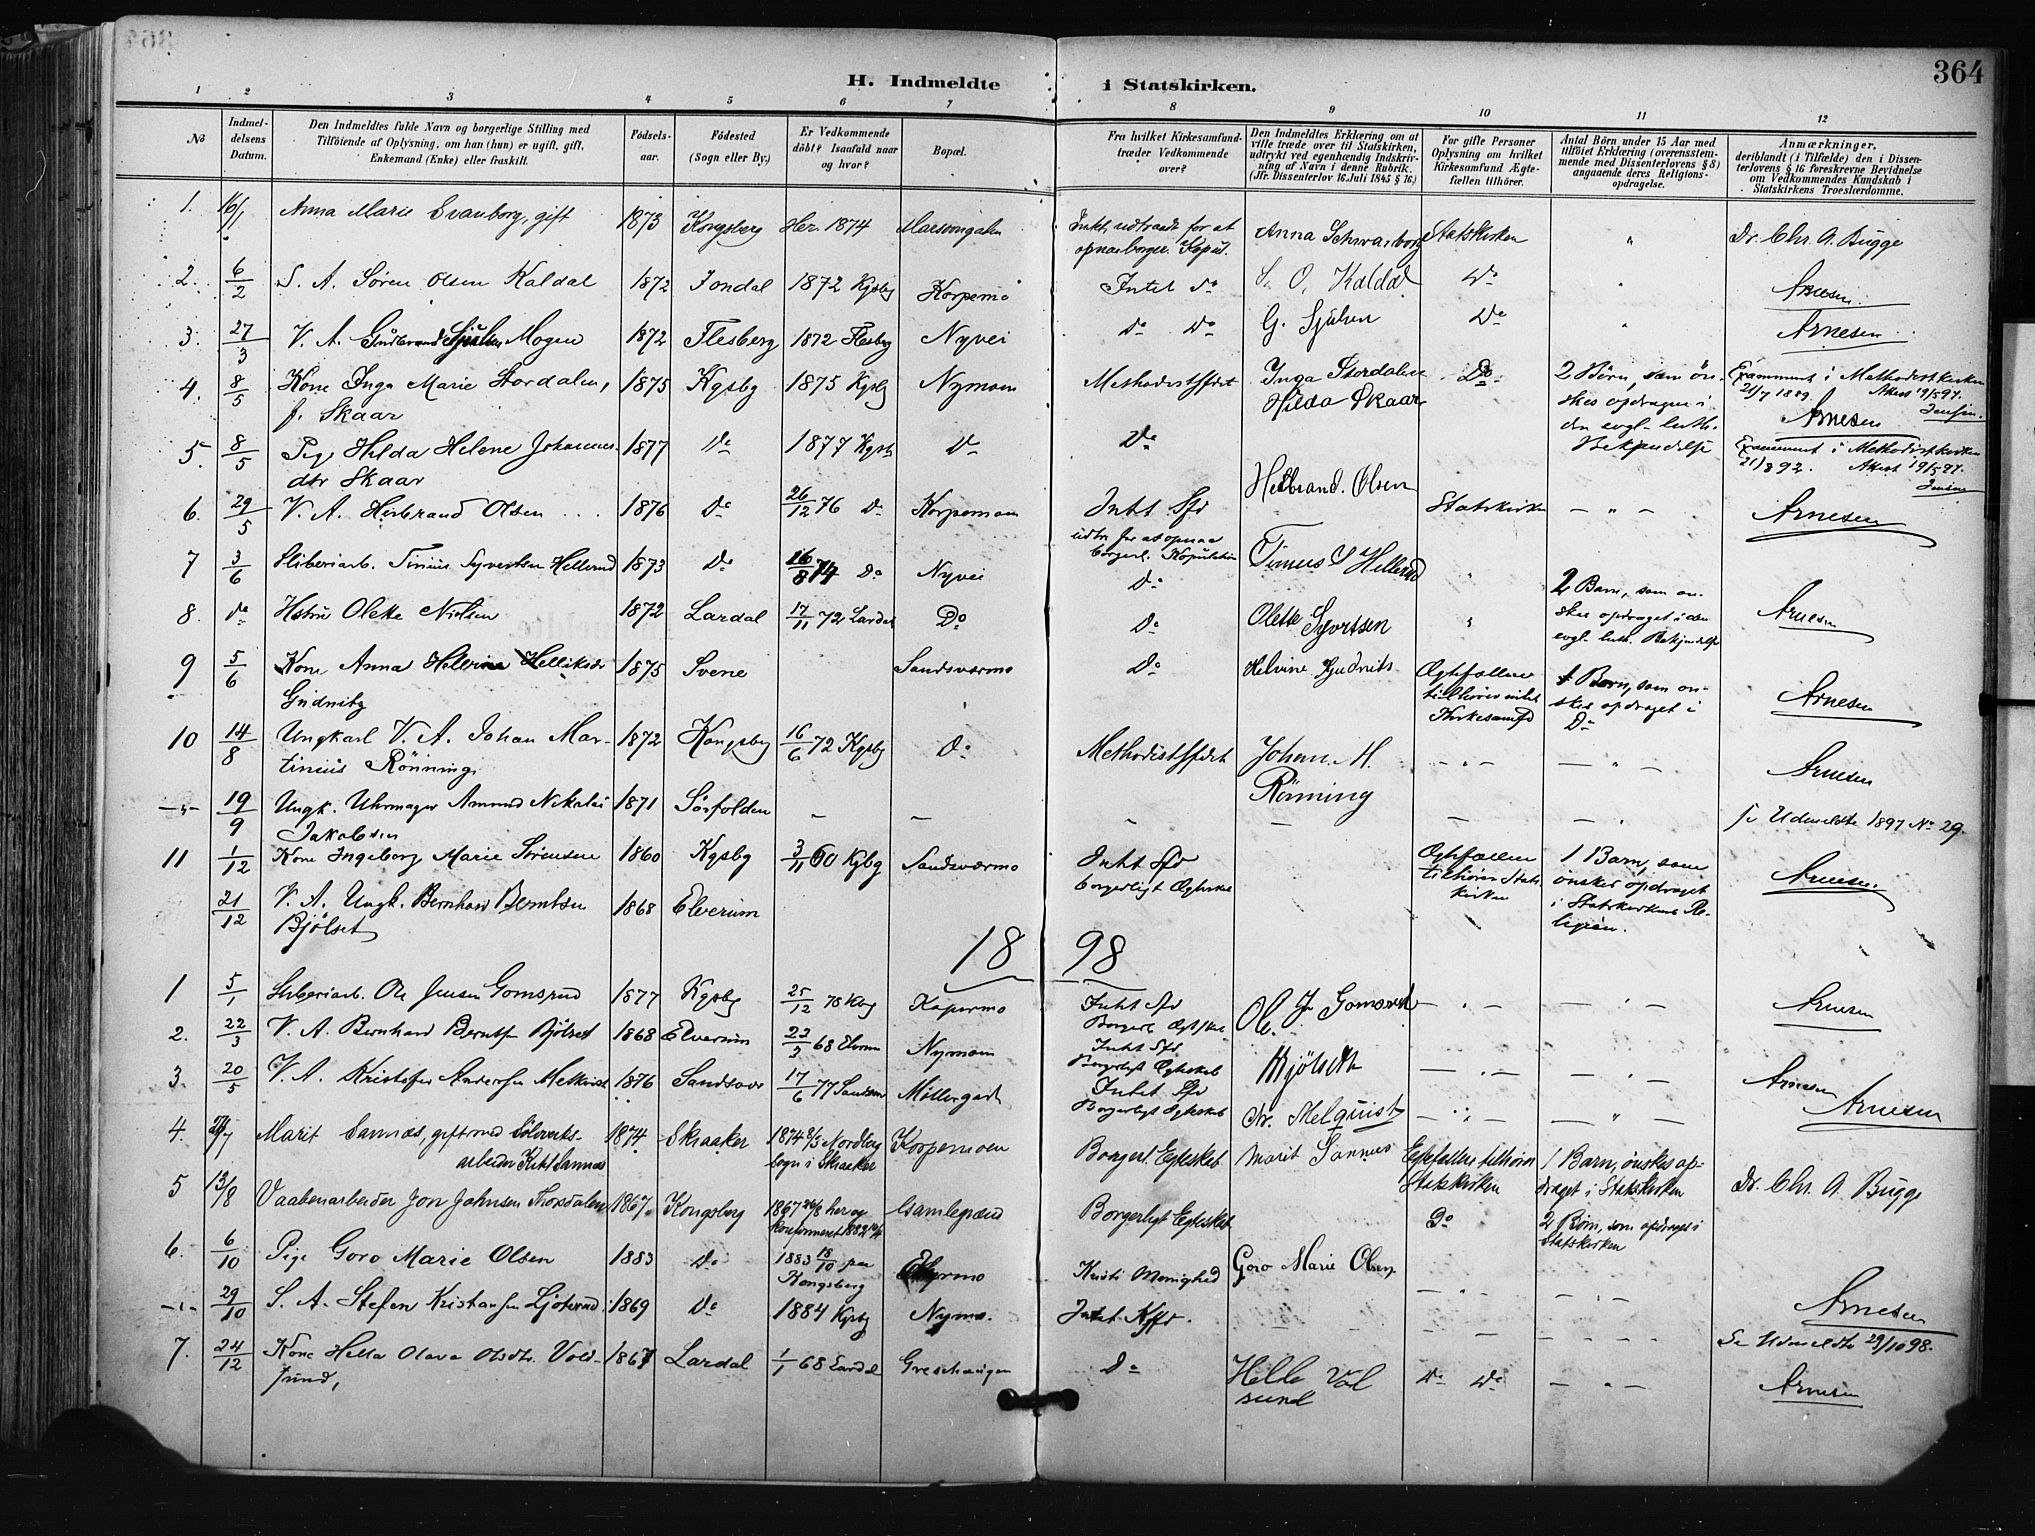 364
H. Indmeldte i Statskirken.
1 2 3 4 5 6 7 8 9 10 11 12
No
Indmel-
delsens
Datum.
Den Indmeldtes fulde Navn og borgerlige Stilling med
Tilföiende af Oplysning, om han (hun) er ugift, gift,
Enkemand (Enke) eller fraskilt.
Födsels-
aar.
Födested
(Sogn eller By.)
Er Vedkommende
döbt? Isaafald naar
og hvor?
Bopæl.
Fra hvilket Kirkesamfund
træder Vedkommende
over?
Den Indmeldtes Erklæring om at
ville træde over til Statskirken,
udtrykt ved egenhændig Indskriv-
ning af Navn i denne Rubrik.
(Jfr. Dissenterlov 16. Juli 1845 § 16.)
For gifte Personer
Oplysning om hvilket
Kirkesamfund Ægte-
fællen tilhörer.
Antal Börn under 15 Aar med
tilföiet Erklæring (overensstem-
mende med Dissenterlovens § 8)
angaaende deres Religions-
opdragelse.
Anmærkninger,
deriblandt (i Tilfælde) den i Dissen-
terlovens § 16 foreskrevne Bevidnelse
om Vedkommendes Kundskab i
Statskirkens Troeslærdomme.
1. 16/1 Anna Marie Svanborg, gift 1873 Kongsberg Her. 1874 Intet, udtraadt for at Anna Schwanborg Statskirken " Dr. Chr. A. Bugge
2. 6/2 S. A. Sören Olsen Kaldal 1872 Jondal 1872 Kgsbg Korpemo Intet do S. O. Kaldal Do " Arnesen
3. 27/3 V. A. Gudbrand Sjulsen Mogen 1872 Flesberg 1872 Flesberg Nyvei do Do G. Sjulsen Do " Arnesen
4. 8/5 Kone Inga Marie Stordalen, 1875 Kgsbg 1875 Kgsbg Nymoen Methodistsfdet Inga Stordalen Do 2 Börn, som ön-
f. Skaar Hilda Skaar skes opdragen i Arnesen
den evgl. luth.
Bekjendelse
5. 8/5 Pige Hilda Helene Johannes- 1877 Do 1877 Kgsb Do Do
dtr Skaar
6. 29/5 V. A. Herbrand Olsen 1876 Do 26/12 76 Do Korpemoen Intet Sfd Herbrand. Olsen Statskirken — " — Arnesen
udtr. for at opnaa
borgerl. Kopulation
7 3/6 Stiberiarb. Tinius Syvertsen Hellerud 1873 Do 16/8 74 Do Nyvei Do Tinius S Hellerud " 2 Barn, som ön-
skes opdraget i den
evgl. luth. Bekjendelse
8. do Hstru Olette Nielsen 1872 Lardal 17/11 72 Lardal Do Do Olette Syvertsen " Arnesen
9 5/6 Kone Anna Helvine Helliksdr 1875 Svene Sandsværmo Do Ægtefællen 1 Barn, som ön-
Gudnitz tilhörer intet skes opdraget i Arnesen
Kirkesamfd Do
10 14/8 Ungkarl V. A. Johan Mar- 1872 Kongsbg 16/6 72 Kgsbg do Methodistsfdet Johan. M. — " — — " — Arnesen
tinius Rönning. Rönning
—"— 19/9 Ungk. Uhrmager Amund Nikolai 1871 Sörfolden — — — — — — " Se Udmeldte 1897 No 29.
Jakobsen
11 1/12 Kone Ingeborg Marie Sörensen 1860 Kgsbg 3/11 60 Kgbg Sandsværmo Intet Sfd Ægtefællen 1 Barn, som Arnesen
borgerligt Ægteskab tilhörer Stats- önskes opdraget
kirken i Statskirkens Re-
ligion.
21/12 V. A. Ungk. Bernhard Berntsen 1868 Elverum
Bjölset
1898
1 5/1 Stiberiarb. Ole Jensen Gomsrud 1877 Kgsbg 25/12 78 Kbg Intet Sfd Ole. J. Gomsrud — " — — " — Arnesen
Borgerl Ægtskab
2. 22/3 V. A. Bernhard Berntsen Bjölset 1868 Elverum 22/3 68 Elverum Nymoen Intet Sfd — " — — " — Arnesen
Borgerligt Ægteskab
3. 20/5 V. A. Kristofer Andersen 1876 Sandsvær 17/6 77 Sandsvær Möllergad Intet Sfd Chr. Melquist — " — " — Arnesen
Borgerligt Ægteskab
4. Marit Sannæs, gift med Sölvverks- 1874 1874 Korpemoen Borgerl. Egteskab Marit Sannes Egtefællen tilhörer 1 Barn, önskes op-
arbeider sogn i Skiaaker Statskirken draget i Statskirken Dr. Chr. A. Bugge
5 13/8 Vaabenarbeider Jon Johnsen Thorsdalen 1867 Kongsberg 1867 her og Gamlegrænd Borgerligt Egteskab Do 2 Börn, som opdrages i
konfirmeret 1882 Statskirken
6. 6/10 Pige Goro Marie Olsen 1883 Do 1883 18/10 paa Kristi Menighed Goro Marie Olsen — " — — " — Arnesen
Kongsberg
—"— 29/10 S. A. Stefen Kristansen 1869 Do 1884 Kgsbg Nymo. Intet Ksfd. — — — Se Udmeldte 29/10 98.
7. 24/12 Kone Hella Olava Olsdtr. Vold- 1867 Lardal 1/1 68 Lardal Do Helle Vol Do Do — " — Arnesen
sund, sund